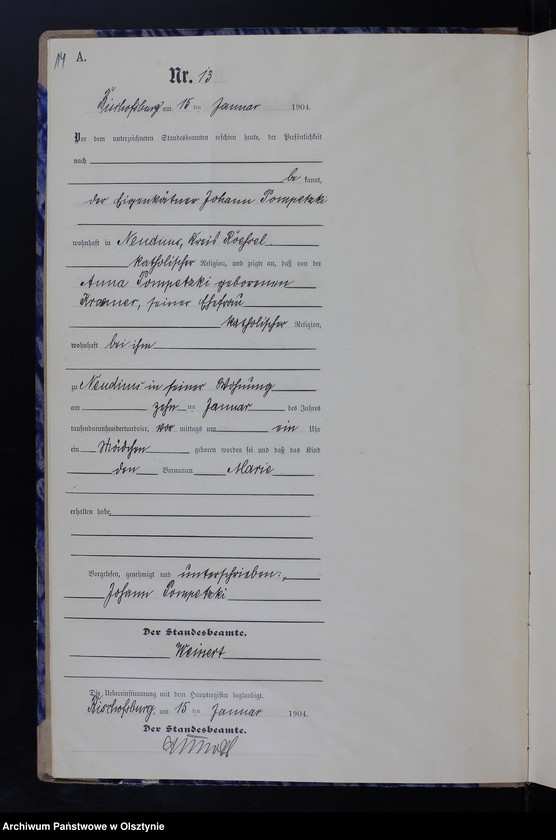 A.
Nr. 13
Bischofsburg am 15 ten Januar 1904.
Vor dem unterzeichneten Standesbeamten erschien heute, der Persönlichkeit
nach
be kannt,
der Eigenkätner Johann Pompetzki
wohnhaft in Neudims, Kreis Rößel
katholischer Religion, und zeigte an, daß von der
Anna Pompetzki geborenen
Kramer, seiner Ehefrau
katholischer Religion,
wohnhaft bei ihm
zu Neudims in seiner Wohnung
am zehn ten Januar des Jahres
tausendneunhundertundvier, vor mittags um ein Uhr
ein Mädchen geboren worden sei und daß das Kind
den Vornamen Marie
erhalten habe
Vorgelesen, genehmigt und unterschrieben:
Johann Pompetzki
Der Standesbeamte.
Weinert
Die Uebereinstimmung mit dem Hauptregister beglaubigt.
Bischofsburg, am 15 ten Januar 1904.
Der Standesbeamte.
Archiwum Państwowe w Olsztynie